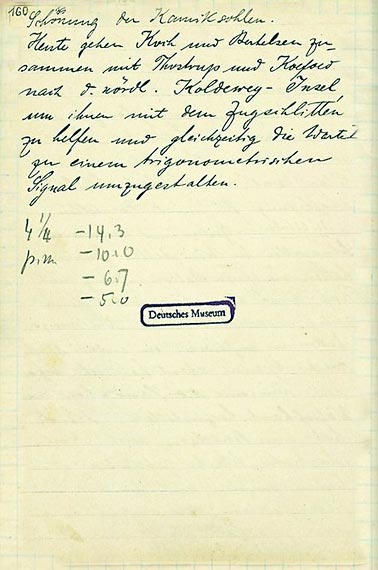 160
Schonung der Kamiksohlen.
Heute gehen Koch und Bertelsen zu
sammen mit Thostrup und Koefoed
nach d. nördl. Koldewey-Insel
um ihnen mit dem Zugschlitten
zu helfen und gleichzeitig die Warte
zu einem trigonometrischen
Signal umzugestalten.
4 1/4 -14,3
p.m. -10,0
-6,7
-5,0
Deutsches Museum